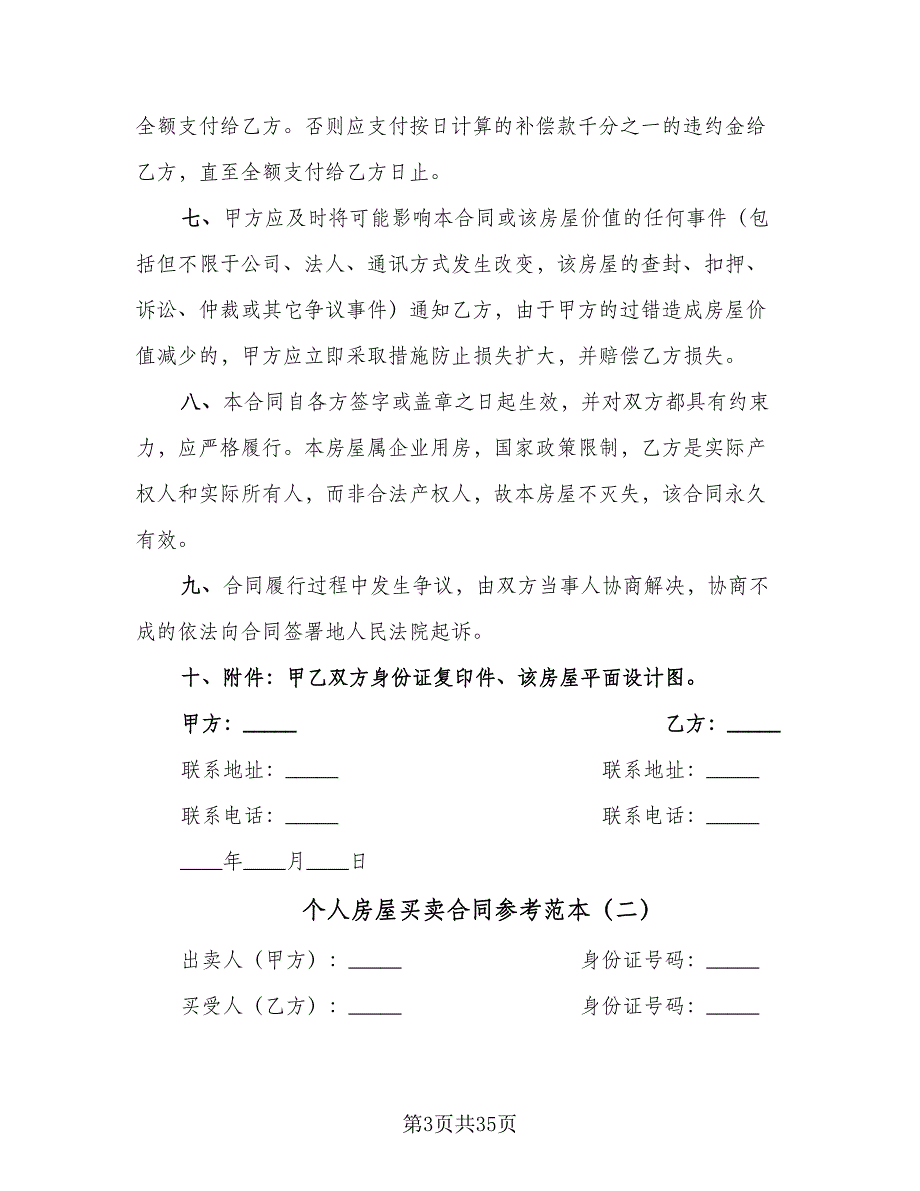 全额支付给乙方。否则应支付按日计算的补偿款千分之一的违约金给
乙方，直至全额支付给乙方日止。
七、甲方应及时将可能影响本合同或该房屋价值的任何事件（包
括但不限于公司、法人、通讯方式发生改变，该房屋的查封、扣押、
诉讼、仲裁或其它争议事件）通知乙方，由于甲方的过错造成房屋价
值减少的，甲方应立即采取措施防止损失扩大，并赔偿乙方损失。
八、本合同自各方签字或盖章之日起生效，并对双方都具有约束
力，应严格履行。本房屋属企业用房，国家政策限制，乙方是实际产
权人和实际所有人，而非合法产权人，故本房屋不灭失，该合同永久
有效。
九、合同履行过程中发生争议，由双方当事人协商解决，协商不
成的依法向合同签署地人民法院起诉。
十、附件：甲乙双方身份证复印件、该房屋平面设计图。
甲方：_____ 乙方：_____
联系地址：_____ 联系地址：_____
联系电话：_____ 联系电话：_____
____年____月____日
个人房屋买卖合同参考范本（二）
出卖人（甲方）：_____ 身份证号码：_____
买受人（乙方）：_____ 身份证号码：_____
第3页共35页